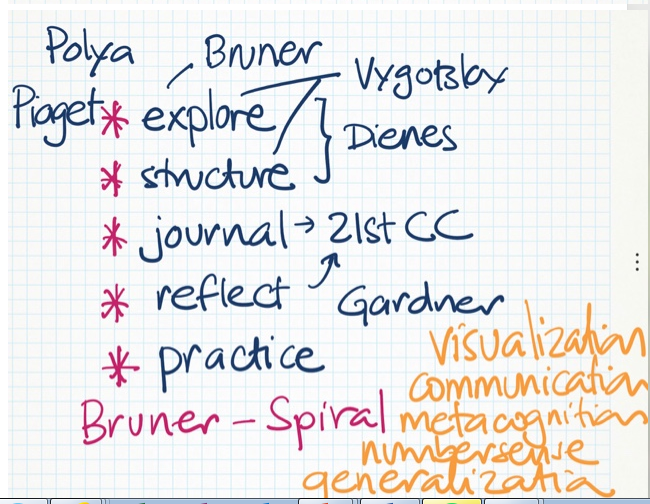 Polya Bruner
Vygotsky
Piaget * explore
Dienes
* structure
* journal → 21st CC
* reflect
Gardner
* practice
visualization
communication
Bruner – Spiral metacognition
numbersense
generalization